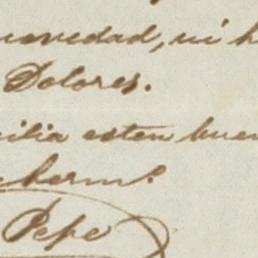 novedad, ni h
Dolores.
milia esten buen
herm?
Pepe